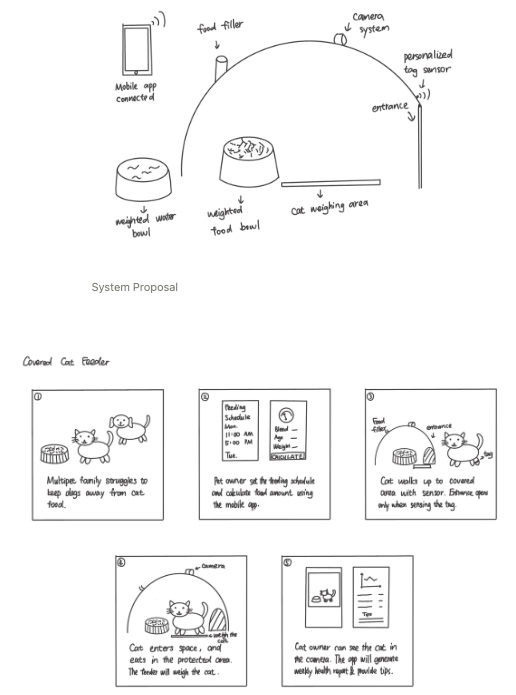 food filler
Camera
system
personalized
tag sensor
Mobile app
connected
entrance
weighted water
bowl
weighted
food bowl
Cat weighing area
System Proposal
Covered Cat Feeder
①
Multipet family struggles to
keep dogs away from cat
food.
②
Feeding
Schedule
Mon.
11:00 AM
5:00 PM
Tue.
Breed
Age
Weight
CALCULATE
Pet owner set the feeding schedule
and calculate food amount using
the mobile app.
③
Food
filler
entrance
tag
Cat walks up to covered
area with sensor. Entrance opens
only when sensing the tag.
④
camera
weigh the
cat
Cat enters space, and
eats in the protected area.
The feeder will weigh the cat.
⑤
Tips
Cat owner can see the cat in
the camera. The app will generate
weekly health report & provide tips.